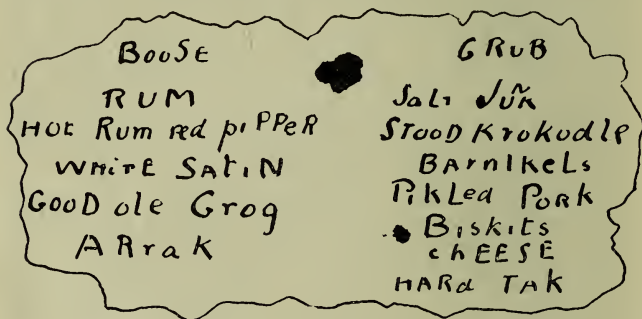 BOUSE
RUM
HOt Rum Red piPPeR
WHitE SATiN
GooD ole Grog
ARraK
GRUB
Salt Juñk
STOOD KroKodle
BArnIKeLs
PiKLed PoRK
BiSKits
chEESE
HARd TAK